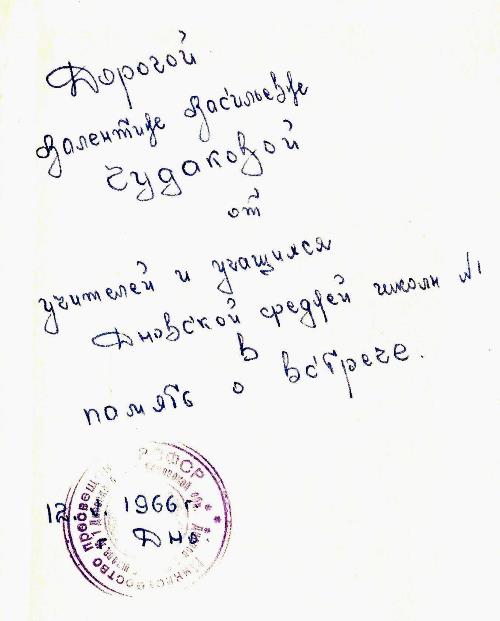 Дорогой
Валентине Васильевне
Чудаковой
от
учителей и учащихся
Дновской средней школы №1
в
память о встрече.
РСФСР
Министерство просвещ
12. 1966 г.
Дно.